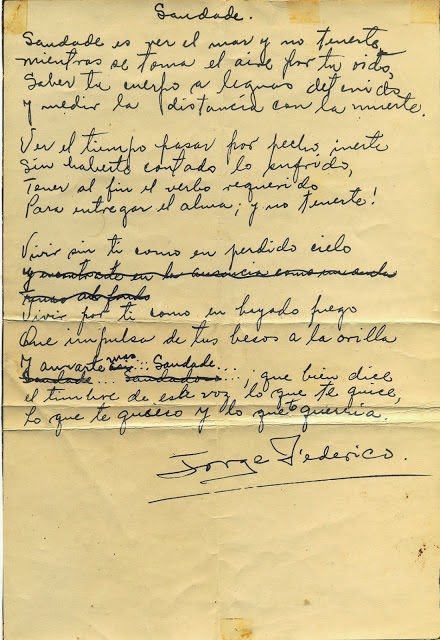 Saudade.
Saudade es ver el mar y no tenerte
mientras se toma el aire por tu vida,
Saber tu cuerpo a leguas detenido
y medir la distancia con la muerte.
Ver el tiempo pasar por pecho inerte
Sin haberte contado lo sufrido,
Tener al fin el verbo requerido
Para entregar el alma; y no tenerte!
Vivir sin ti como en perdido cielo
y encontrarte en la ausencia como
Vivir por ti como en fuego
Que impulsa de tus besos a la orilla
Y amarte mas... Saudade...
Saudade... Saudades..., que bien dice
el timbre de esta voz, lo que te quise,
Lo que te quiero y lo que te querría.
Jorge Federico.